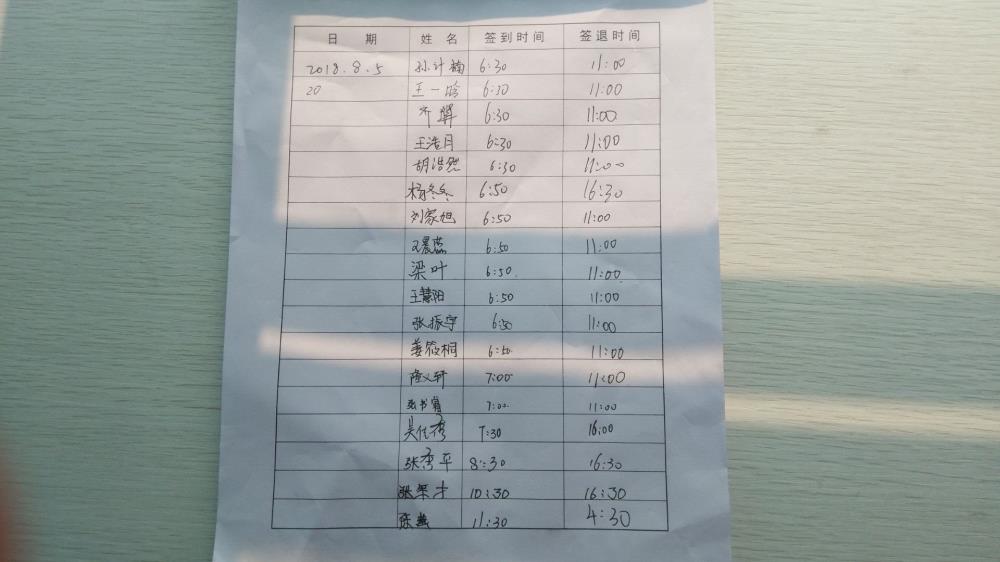 日 期 姓 名 签到时间 签退时间
2018.8.5 孙计楠 6:30 11:00
20 王一晗 6:30 11:00
齐 6:30 11:00
王浩月 6:30 11:00
胡浩然 6:30 11:00
杨冬冬 6:50 16:30
刘家旭 6:50 11:00
晨蕊 6:50 11:00
梁叶 6:50. 11:00
王慧阳 6:50 11:00
张振宇 6:50 11:00
姜筱桐 6:50. 11:00
隆义轩 7:00 11:00
张书 7:00 11:00
吴 7:30 16:00
张秀平 8:30 16:30
张 才 10:30 16:30
11:30 4:30